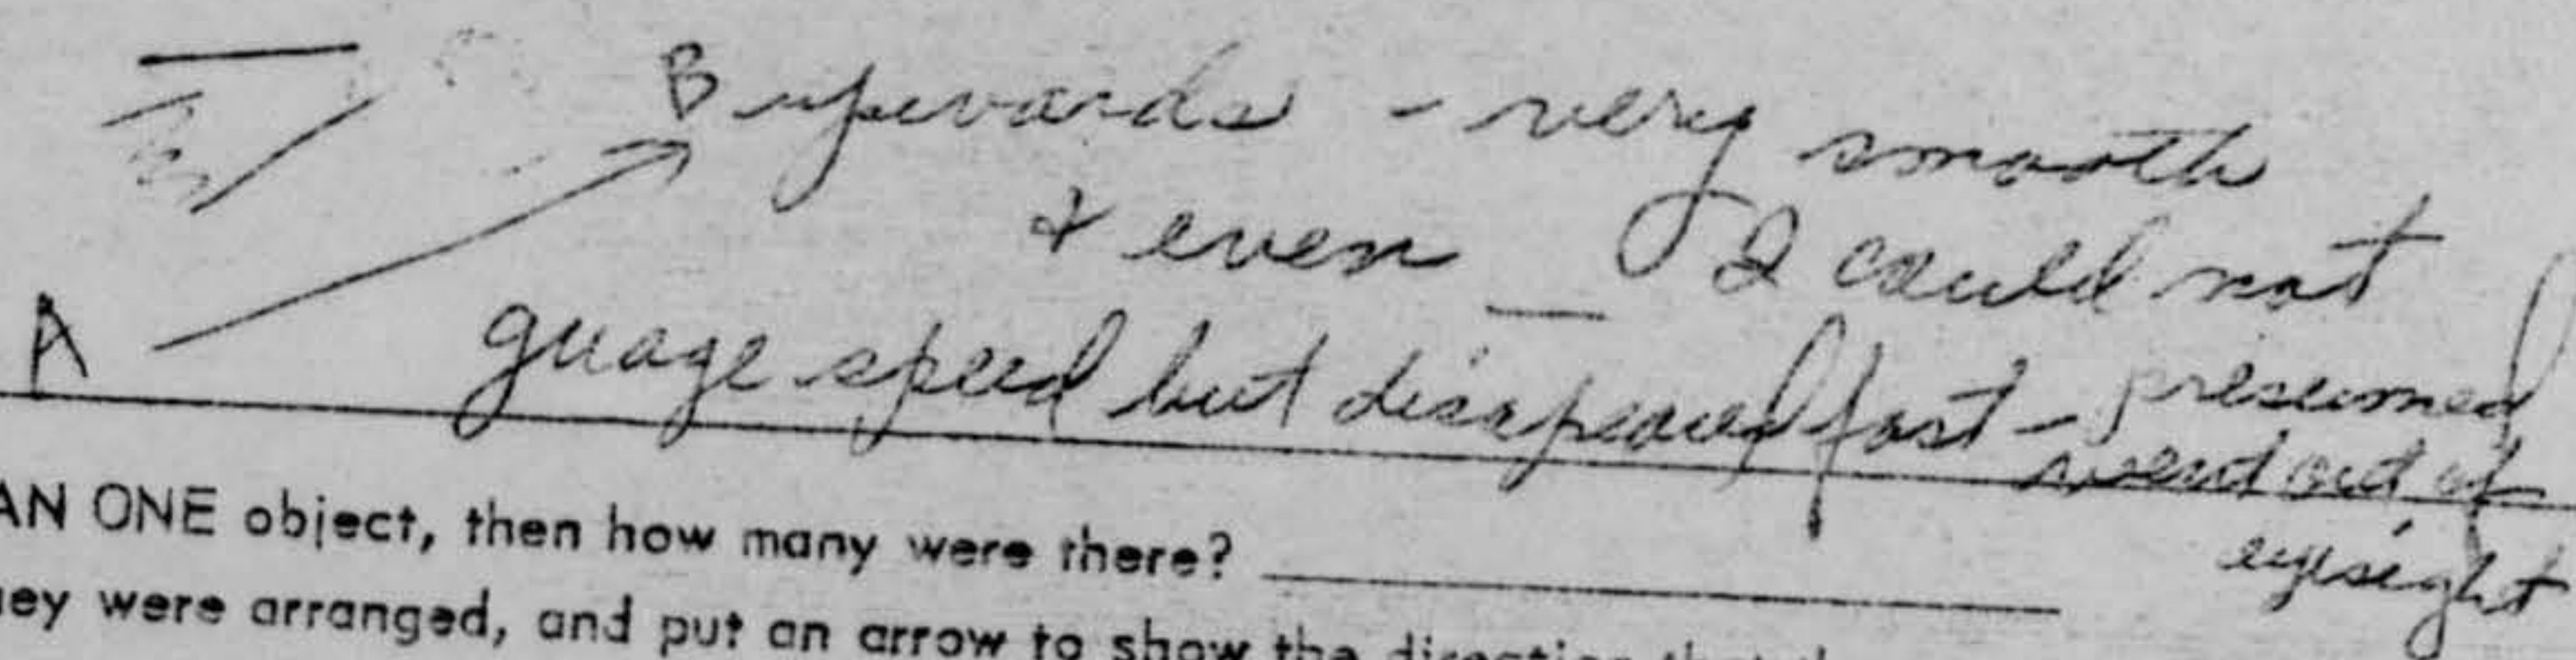 B upwards - very smooth
& even — I could not
A
guage speed but disapeared fast - presumed
went out of
eyesight
AN ONE object, then how many were there?
ey were arranged, and put an arrow to show the direction that